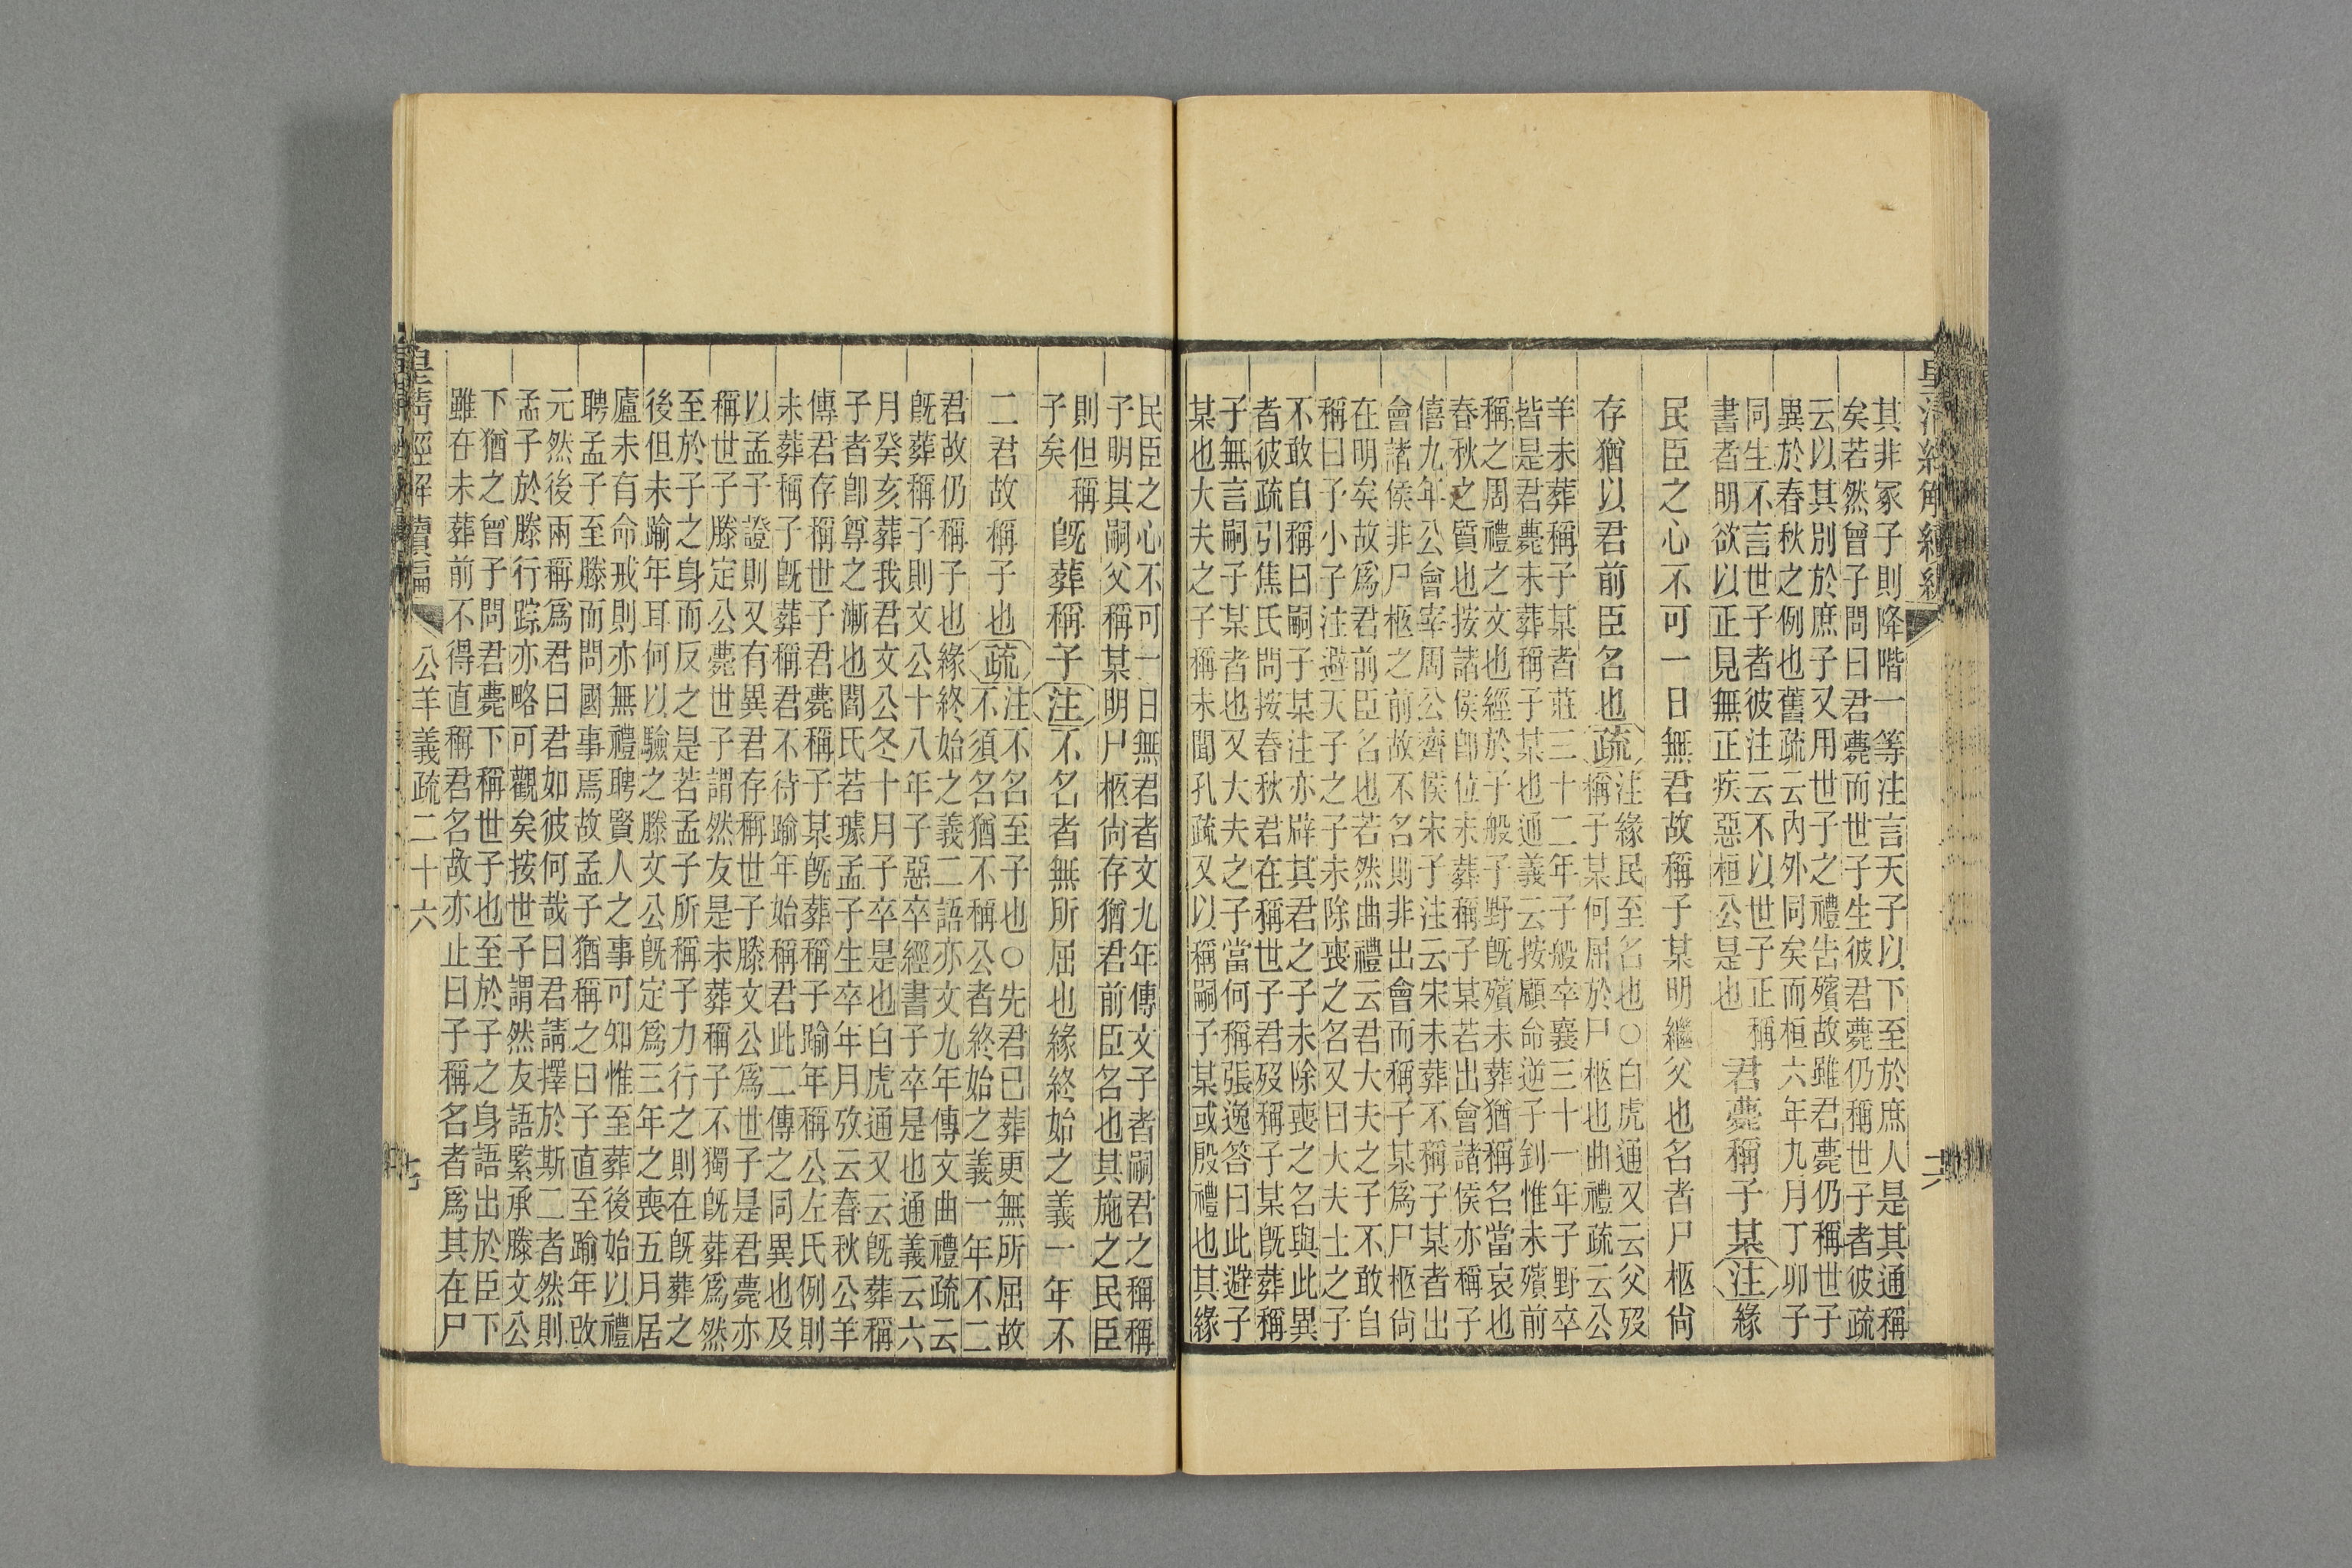 皇清經解續編
六
其非冢子則降階一等注言天子以下至於庶人是其通稱
矣若然曾子問曰君薨而世子生彼君薨仍稱世子者彼疏
云以其別於庶子又用世子之禮告殯故雖君薨仍稱世子
異於春秋之例也舊疏云內外同矣而桓六年九月丁卯子
同生不言世子者彼注云不以世子正稱
書者明欲以正見無正疾惡桓公是也
君薨稱子某注緣
民臣之心不可一日無君故稱子某明繼父也名者尸柩尙
存猶以君前臣名也疏
注緣民至名也○白虎通又云父歿
稱子某何屈於尸柩也曲禮疏云公
羊未葬稱子某者莊三十二年子般卒襄三十一年子野卒
皆是君薨未葬稱子某也通義云按顧命逆子釗惟未殯前
稱之周禮之文也經於子般子野旣殯未葬猶稱名當哀也
春秋之質也按諸侯卽位未葬稱子某若出會諸侯亦稱子
僖九年公會宰周公齊侯宋子注云宋未葬不稱子某者出
會諸侯非尸柩之前故不名則非出會而稱子某爲尸柩尙
在明矣故爲君前臣名也若然曲禮云君大夫之子不敢自
稱曰子小子注避天子之子未除喪之名又曰大夫士之子
不敢自稱曰嗣子某注亦辟其君之子未除喪之名與此異
者彼疏引焦氏問按春秋君在稱世子君歿稱子某旣葬稱
子無言嗣子某者也又大夫之子當何稱張逸答曰此避子
某也大夫之子稱未聞孔疏又以稱嗣子某或殷禮也其緣
民臣之心不可一日無君者文九年傳文子者嗣君之稱稱
子明其嗣父稱某明尸柩尙存猶君前臣名也其施之民臣
則但稱
子矣
旣葬稱子注不名者無所屈也緣終始之義一年不
二君故稱子也疏
注不名至子也○先君已葬更無所屈故
不須名猶不稱公者終始之義一年不二
君故仍稱子也緣終始之義二語亦文九年傳文曲禮疏云
旣葬稱子則文公十八年子惡卒經書子卒是也通義云六
月癸亥葬我君文公冬十月子卒是也白虎通又云旣葬稱
子者卽尊之漸也閻氏若璩孟子生卒年月攷云春秋公羊
傳君存稱世子君薨稱子某旣葬稱子踰年稱公左氏例則
未葬稱子旣葬稱君不待踰年始稱君此二傳之同異也及
以孟子證則又有異君存稱世子滕文公爲世子是君薨亦
稱世子滕定公薨世子謂然友是未葬稱子不獨旣葬爲然
至於子之身而反之是若孟子所稱子力行之則在旣葬之
後但未踰年耳何以驗之滕文公旣定爲三年之喪五月居
廬未有命戒則亦無禮聘賢人之事可知惟至葬後始以禮
聘孟子至滕而問國事焉故孟子猶稱之曰子直至踰年改
元然後兩稱爲君曰君如彼何哉曰君請擇於斯二者然則
孟子於滕行踪亦略可觀矣按世子謂然友語緊承滕文公
下猶之曾子問君薨下稱世子也至於子之身語出於臣下
雖在未葬前不得直稱君名故亦止曰子稱名者爲其在尸
皇清經解續編
公羊義疏二十六
七